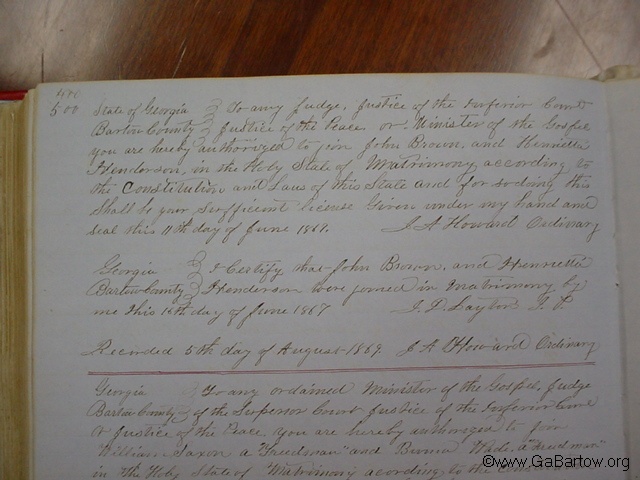 470
500
State of Georgia } To any Judge, Justice of the Inferior Court
Bartow County } Justice of the Peace or Minister of the Gospel
you are hereby authorized to join John Brown, and Henrietta
Henderson, in the Holy State of Matrimony according to
the Constitution and Laws of this State and for so doing this
Shall be your Sufficient license Given under my hand and
Seal this 11th day of June 1867. J. A Howard Ordinary
Georgia } I Certify that John Brown, and Henrietta
Bartow County } Henderson were joined in Matrimony by
me this 16th day of June 1867 J. D. Layton J. P.
Recorded 5th day of August 1867. J A Howard Ordinary
Georgia } To any ordained Minister of the Gospel, Judge
Bartow County } of the Superior Court Justice of the Inferior Court
or Justice of the Peace you are hereby authorized to join
William Saxon a "Freedman" and Wade, a "
in the Holy State of Matrimony according to the
©www.GaBartow.org